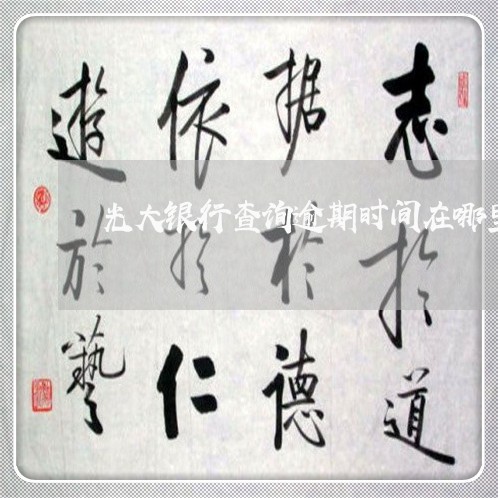 志於道
据於德
依於仁
遊於藝
光大银行查询逾期时间在哪